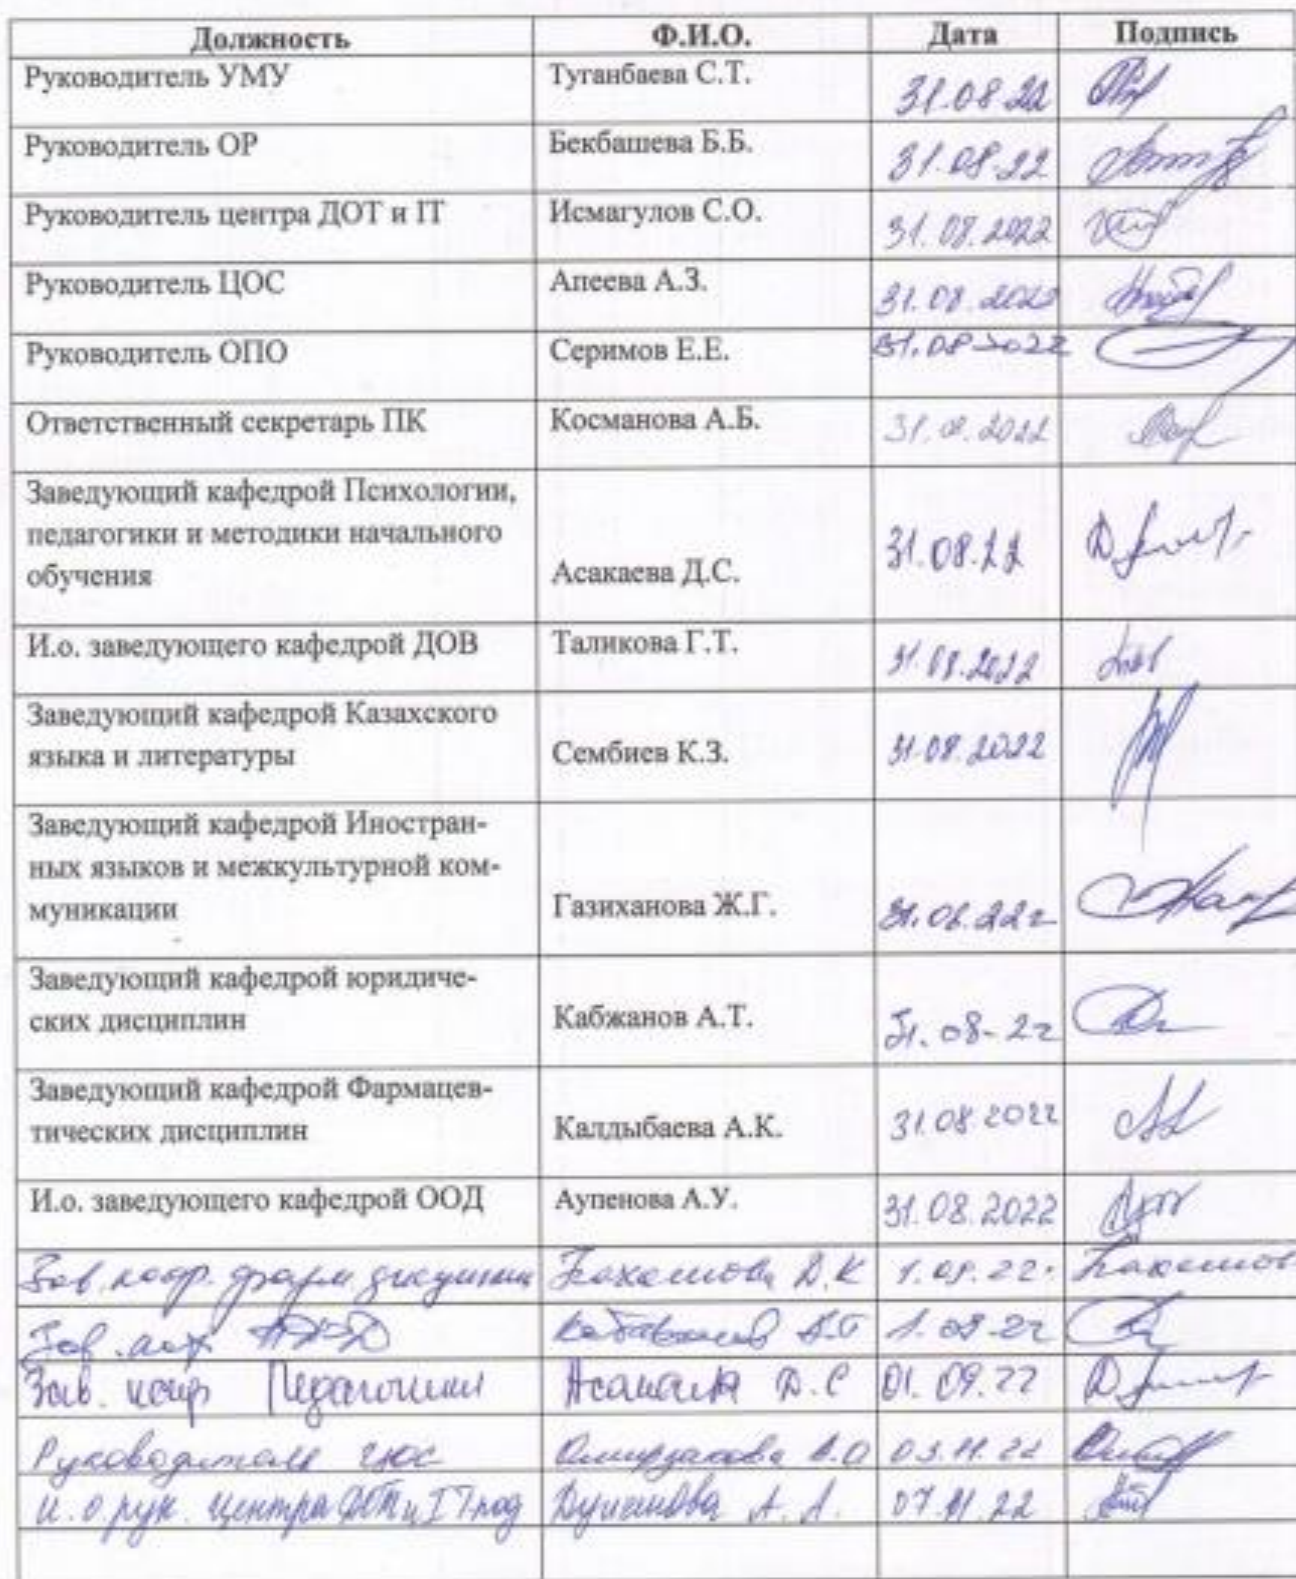 Должность Ф.И.О. Дата Подпись
Руководитель УМУ Туганбаева С.Т. 31.08.22
Руководитель ОР Бекбашева Б.Б. 31.08.22
Руководитель центра ДОТ и IT Исмагулов С.О. 31.08.2022
Руководитель ЦОС Апеева А.З. 31.08.2022
Руководитель ОПО Серимов Е.Е. 31.08.2022
Ответственный секретарь ПК Косманова А.Б. 31.08.2022
Заведующий кафедрой Психологии,
педагогики и методики начального
обучения Асакаева Д.С. 31.08.22
И.о. заведующего кафедрой ДОВ Таликова Г.Т. 31.08.2022
Заведующий кафедрой Казахского
языка и литературы Сембиев К.З. 31.08.2022
Заведующий кафедрой Иностран-
ных языков и межкультурной ком-
муникации Газиханова Ж.Г. 31.08.22г
Заведующий кафедрой юридиче-
ских дисциплин Кабжанов А.Т. 31.08-22
Заведующий кафедрой Фармацев-
тических дисциплин Калдыбаева А.К. 31.08.2022
И.о. заведующего кафедрой ООД Аупенова А.У. 31.08.2022
Зав. кафр. фарм Д.К 1.09.22.
Зав. 1.09-22
Зав. кафр Педагогики Асакаева Д.С 01.09.22
Руководитель А.О 03.11.22
и.о рук. центра ДОТ и IT А.А. 07.11.22